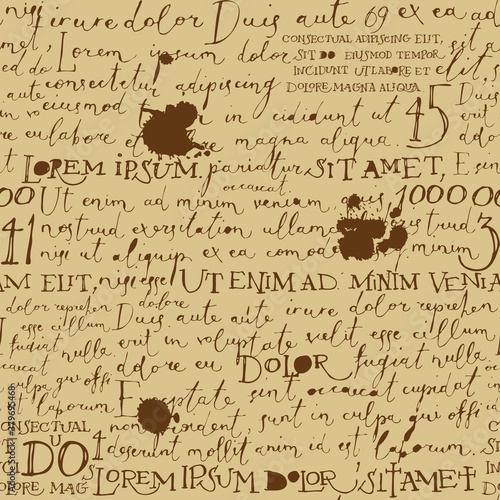 irure dolor Duis aute 69 ex ea
Lorem ipsum dolor
CONSECTUAL ADIPISCING ELIT,
SIT DO EIUSMOD TEMPOR
INCIDUNT UT LABORE ET
DOLORE MAGNA ALIQUA
consectetur adipiscing elit, s
aute
eiusmod in cididunt ut 45
re eu labore et magna aliqua.
LOREM IPSUM, pariatur, SIT AMET, E
occaecat
00 Ut enim ad minim veniam, quis 1000 00
41 nostrud exersitation ullamco 3
nisi ut aliquip ex ea comodo minim
AM ELIT, nisi esse UT ENIM AD MINIM VENIA
dolor reprehen dolore
Duis aute aute irure dolor reprehen
esse cillum
in voluptate velit esse cillum
fugiat nulla
dolore eu DOLOR fugiat nulla
culpa qui offi
Exceptate sint occaecat cupidat
laborum
non proident, sunt in culpa qui offi
CONSECTUAL
U
DO 4 deserunt mollit anim id est laborum.
ORE MAG
LOREM IPSUM DOLOR, SIT AMET
Adobe Stock | #249655468